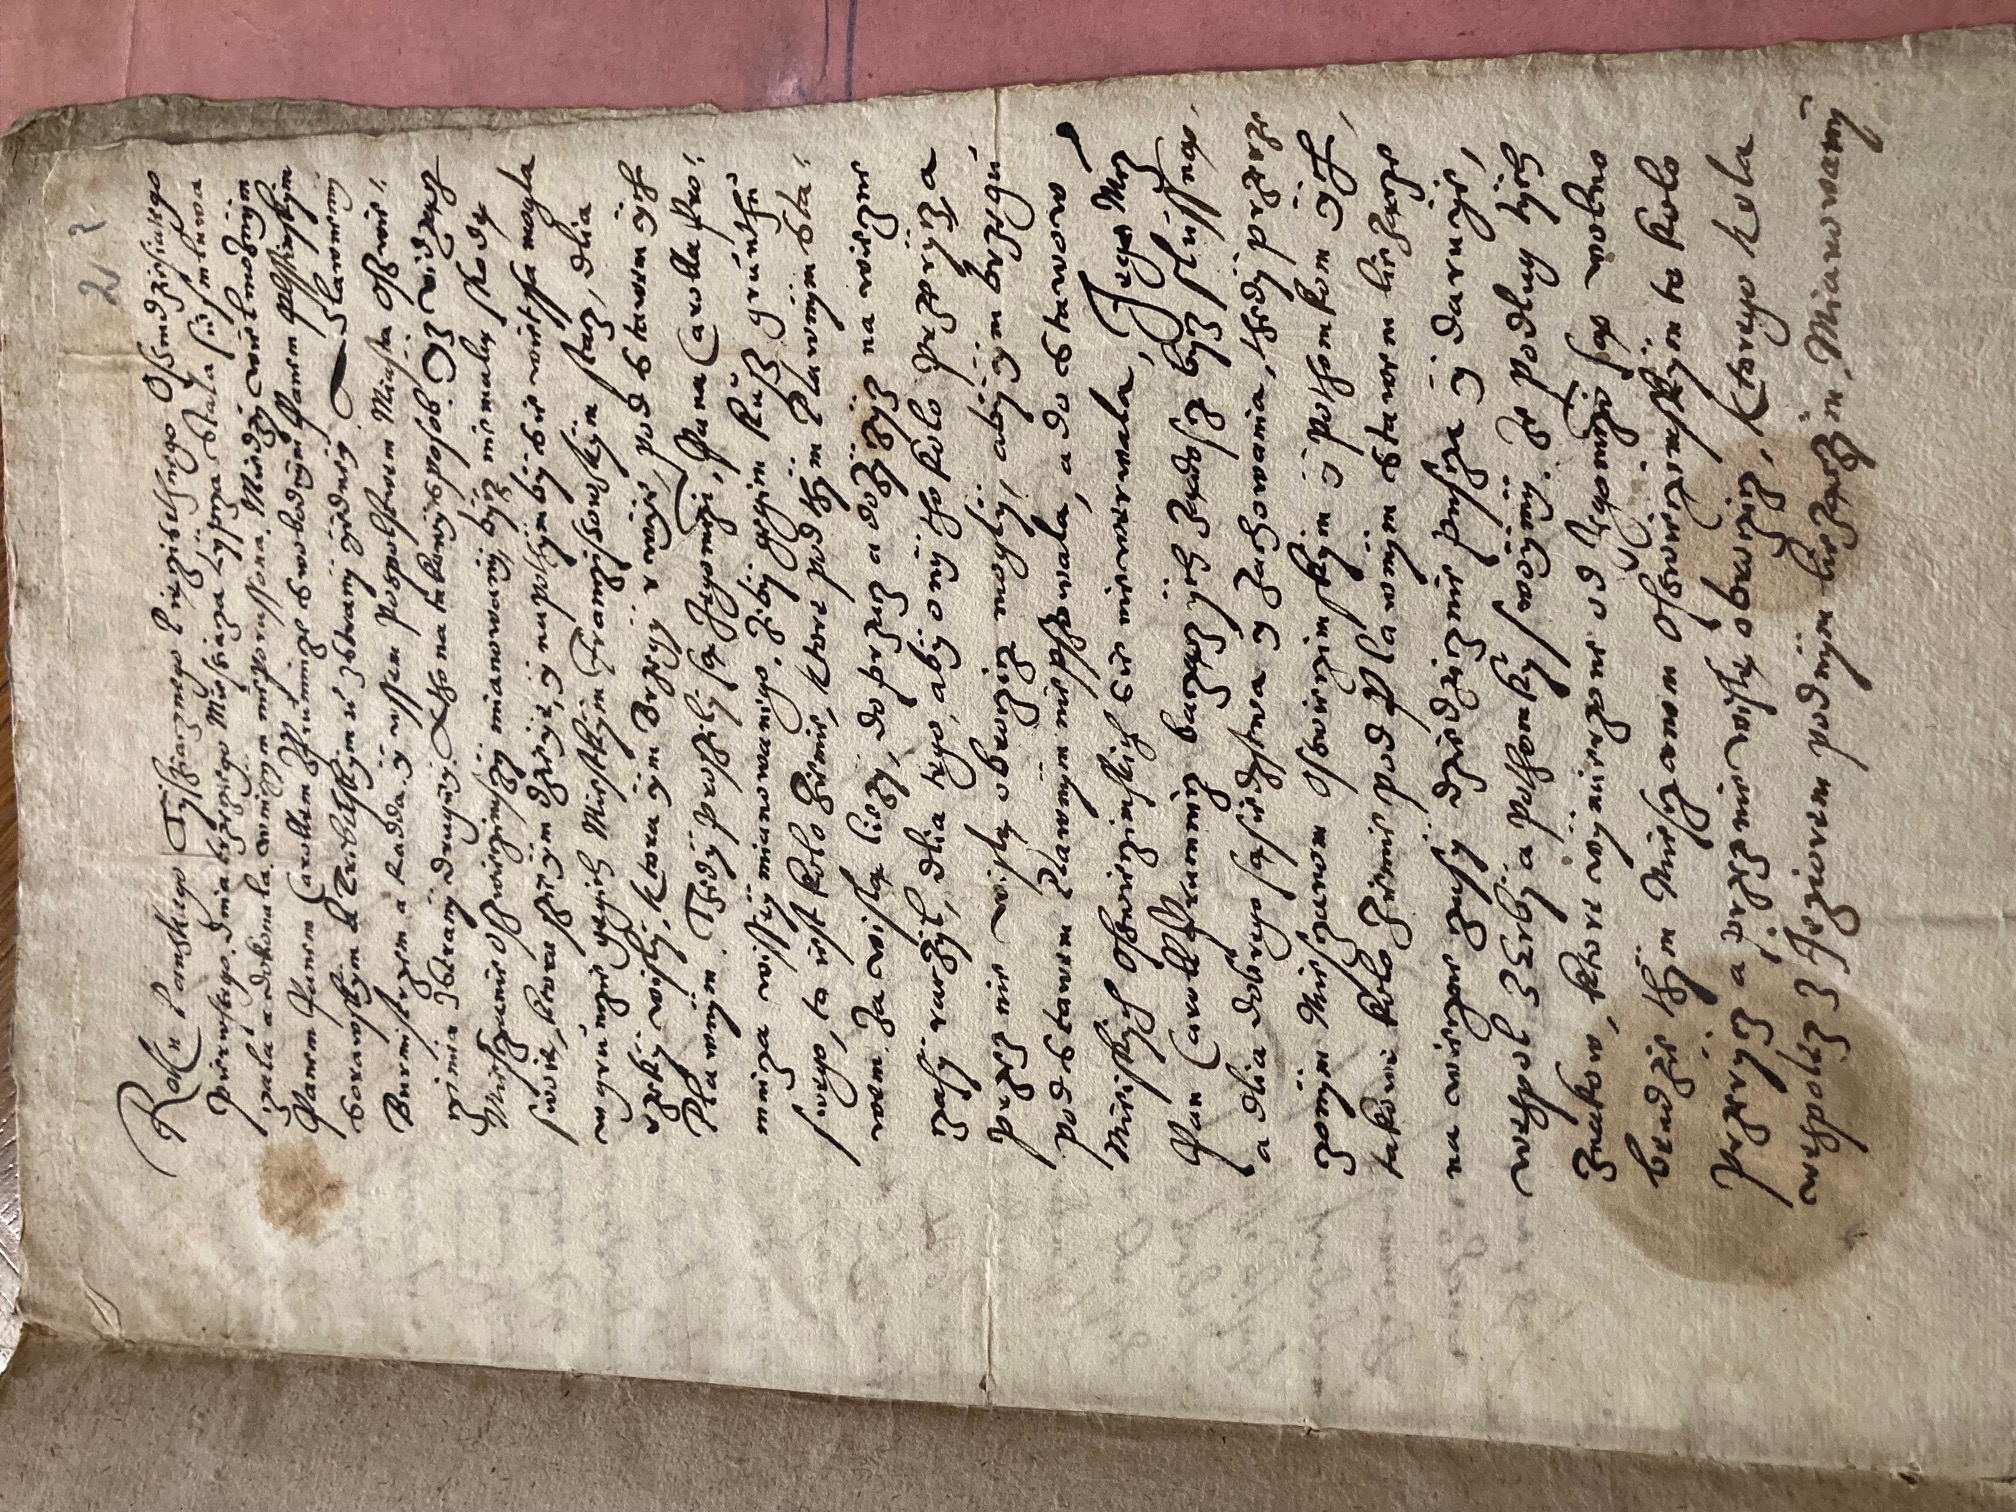 2
Roku Panskego Tysziacznego Pięczisethnego Oszmdziesiatego
pierwszego. dnia trzeczego Miesiacza Lypcza Stala sie smluwa
czala a dokonala. wniczym nieporussona. Miedzy wielmoznym
Panem Panem Carollem Prumnicze Swobodnym Panem Plsstinskym
Sorawskym a Tribelskym etc zStrany yedney. A Slawnemy
Burmistrzem a Radda. y wssem Pospolstwem Miasta Oszwie-
czimia zStrany drugey. A tho na takowy sposob. Yz vidzacz
Miesczanie Oszwieczimszy mianowany, bycz niemalą skodę
swoię, ktora szie ym dzieye, y napothym by Sie wietssa mogla
w gruncie gegich Miestkym Franczissowskym stacz, dlia
rzeky wisly, ktora ym Brzegy rwye, pod Stawem ych
Plawnym. Thedy proszily są Jegomczi, Pana Carolla Pro-
mnicza wissymianowanego. zeby gegim kusz grunthu
swego, to iest kolo Ziemie, ktore pod thym Plawnym Sta-
wem za wislą liezy, doprzacz a dozyczycz na wieczne
czasy raczyl, dlia tego, aby ony tho kolo przerycz, a
przez nie wislę obroczicz mogly, aby ym brzegu
pod Stawem Plawnym niepszowala, a do Stawow
Mieiskych Osswieczimskich Sie niewerwala, Jego Mcz
Pan Caroll Prumnicz baczacz ych ządoscz bycz slussną,
a dlia dobrego sąsiedzstwa y zachowania, thedy przerze
czonym Miesczanom Osswieczimskym y pothomkom ych,
takowe kolo Ziemie pod Plawnym Stawem liezącze
na wieczne czasy dziedzicznie puscza y daruye,
wespol z Erby a pothomky swoymy. ze podlug tych
znakow, ktore wymierzone od Jegomczi są wolno
bendzie thym Miesczanom Osswieczimskym to kolo
przerycz a przeznie wislę obroczicz, ktorego kola
wespolez z Jeziorem podnym liezączym. Mianowany